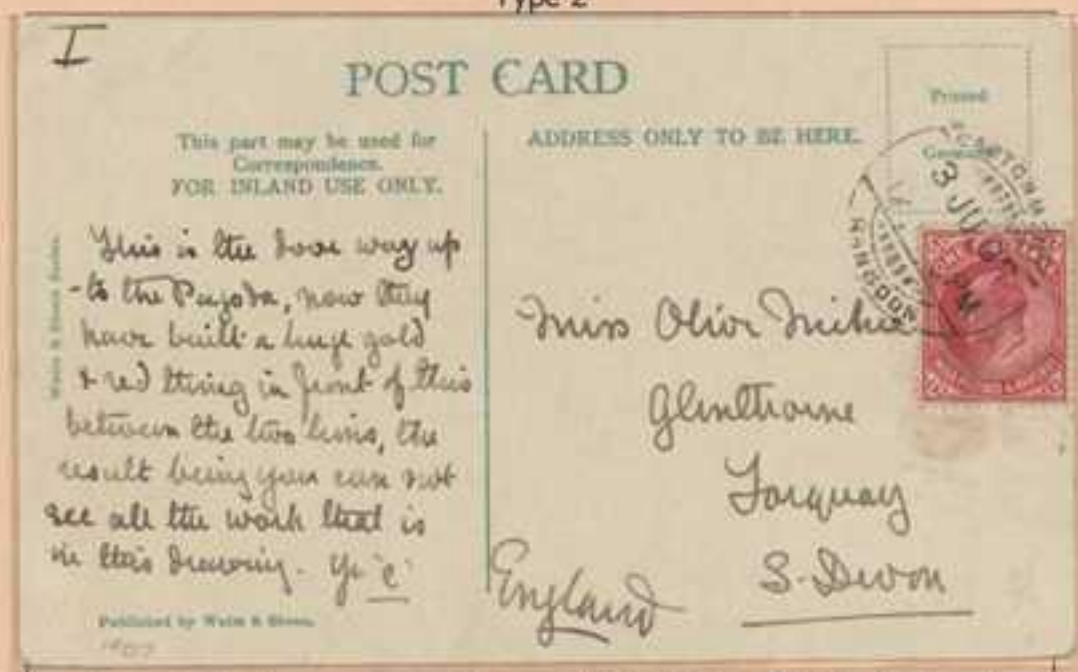 Type 2
I
POST CARD
This part may be used for
Correspondence.
FOR INLAND USE ONLY.
ADDRESS ONLY TO BE HERE.
Printed
in
Germany
3 JU
PM
RANGOON
This is the door way up
to the Pagoda, now they
have built a huge gold
& red thing in front of this
between the two lions, the
result being you can not
see all the work that is
in this drawing. Yr "C"
Miss Olive
Glenthorne
Torquay
S. Devon
England
Published by Watts & Skeen.
1907